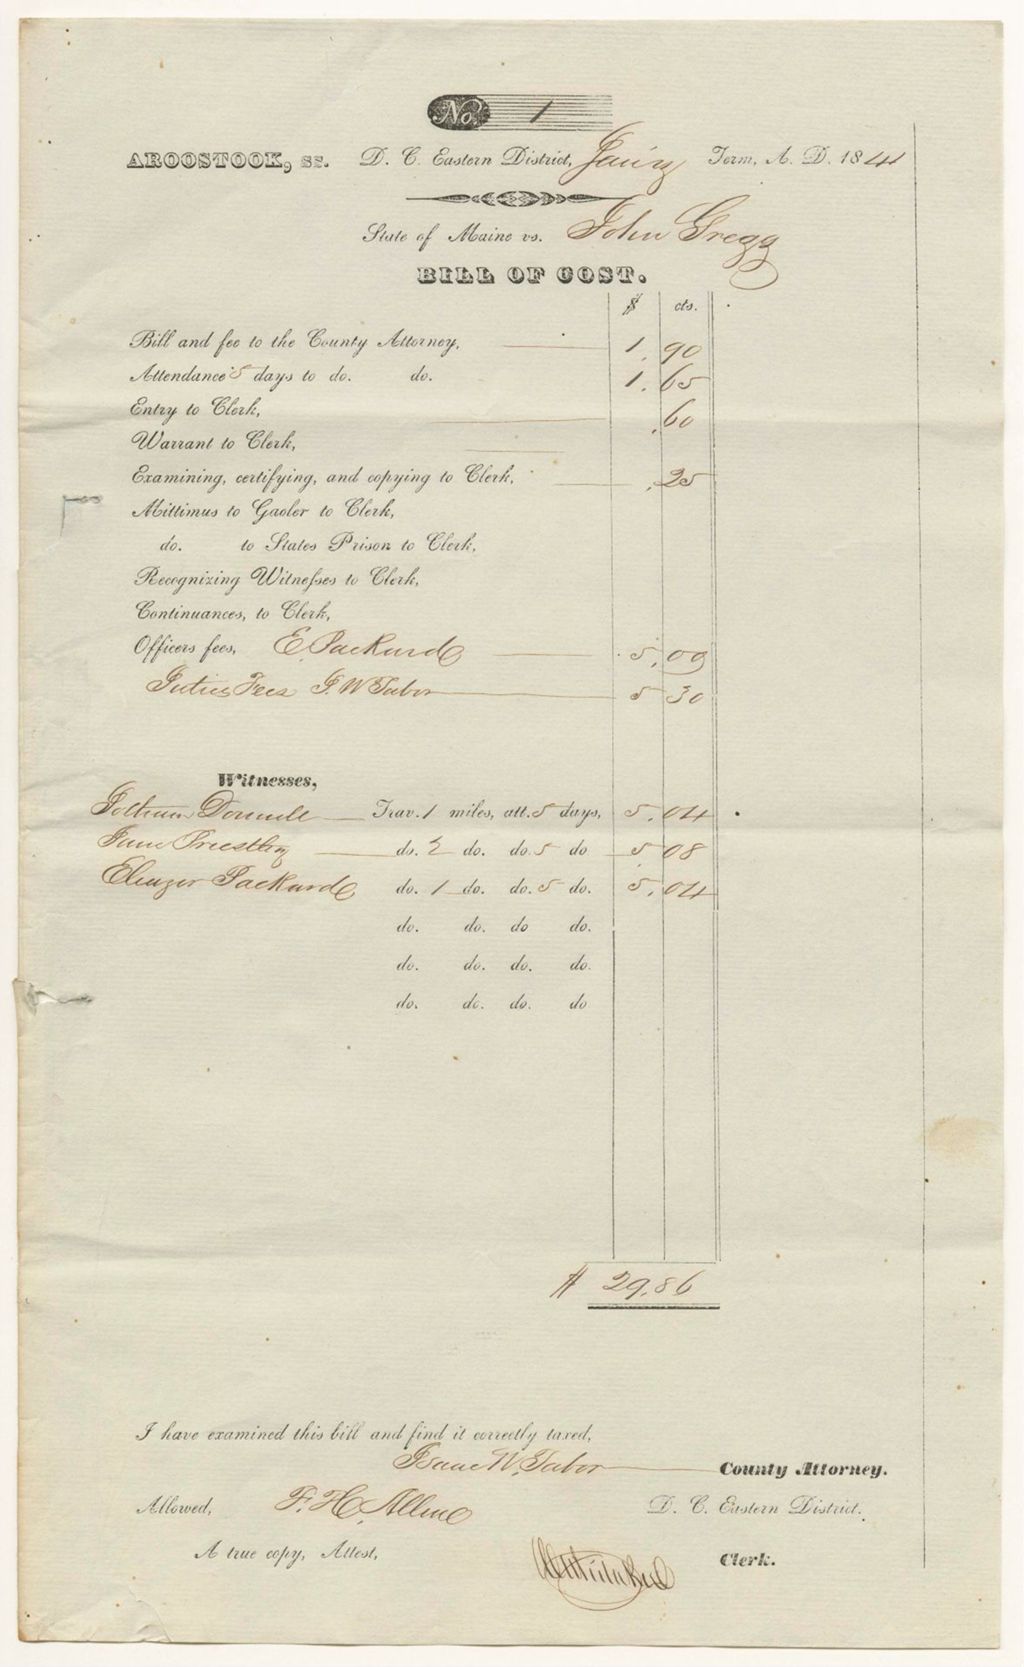 No. 1
AROOSTOOK, ss. D. C. Eastern District, Term, A. D. 1841
State of Maine vs. John Gregg
BILL OF COST.
$ cts.
Bill and fee to the County Attorney, 1. 90
Attendance 5 days to do. do. 1. 65
Entry to Clerk, .60
Warrant to Clerk,
Examining, certifying, and copying to Clerk, .25
Mittimus to Gaoler to Clerk,
do. to States Prison to Clerk,
Recognizing Witnesses to Clerk,
Continuances, to Clerk,
Officers fees, E. Packard 5.00
Fees I. W. Tabor 5 30
Witnesses,
Donnell Trav. 1 miles, att. 5 days, 5.04
Jane Priestley do. 2 do. do. 5 do 5 08
Eleazer Packard do. 1 do. do. 5 do. 5.04
do. do. do do.
do. do. do. do.
do. do. do. do
$ 29.86
I have examined this bill and find it correctly taxed,
Isaac W. Tabor County Attorney.
Allowed, F. H. Allen D. C. Eastern District.
A true copy, Attest, Clerk.